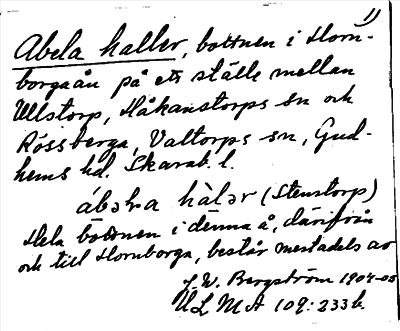 11)
Abela haller, bottnen i Horn-
borgaån på ett ställe mellan
Ullstorp, Håkanstorps sn och
Rössberga, Valtorps sn, Gud-
hems hd. Skarab. l.
ábəɫa hàlər (Stenstorp)
Hela bottnen i denna å, därifrån
och till Hornborga, består mestadels av
J. W. Bergström 1904-05
ULMA 109:233 b.